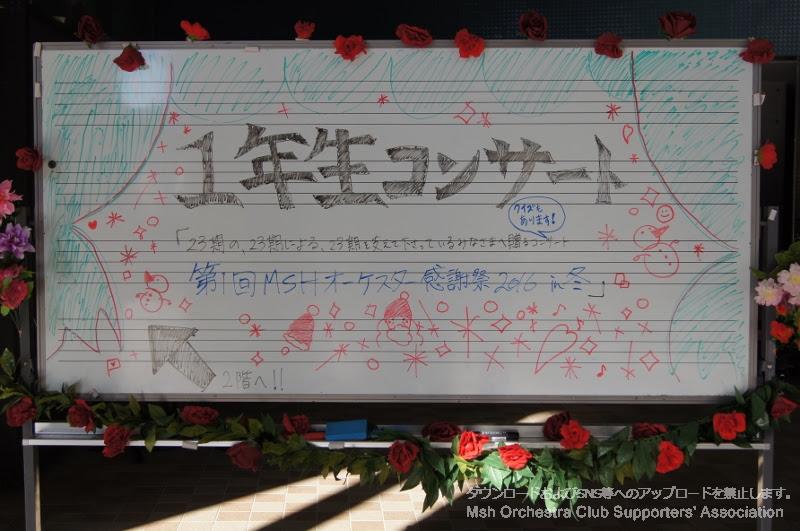 1年生コンサート
クイズも
あります!
「23期の、23期による、23期を支えて下さっているみなさまへ贈るコンサート
第1回MSHオーケスター感謝祭2016 in 冬」
2階へ!!
ダウンロードおよびSNS等へのアップロードを禁止します。
Msh Orchestra Club Supporters' Association